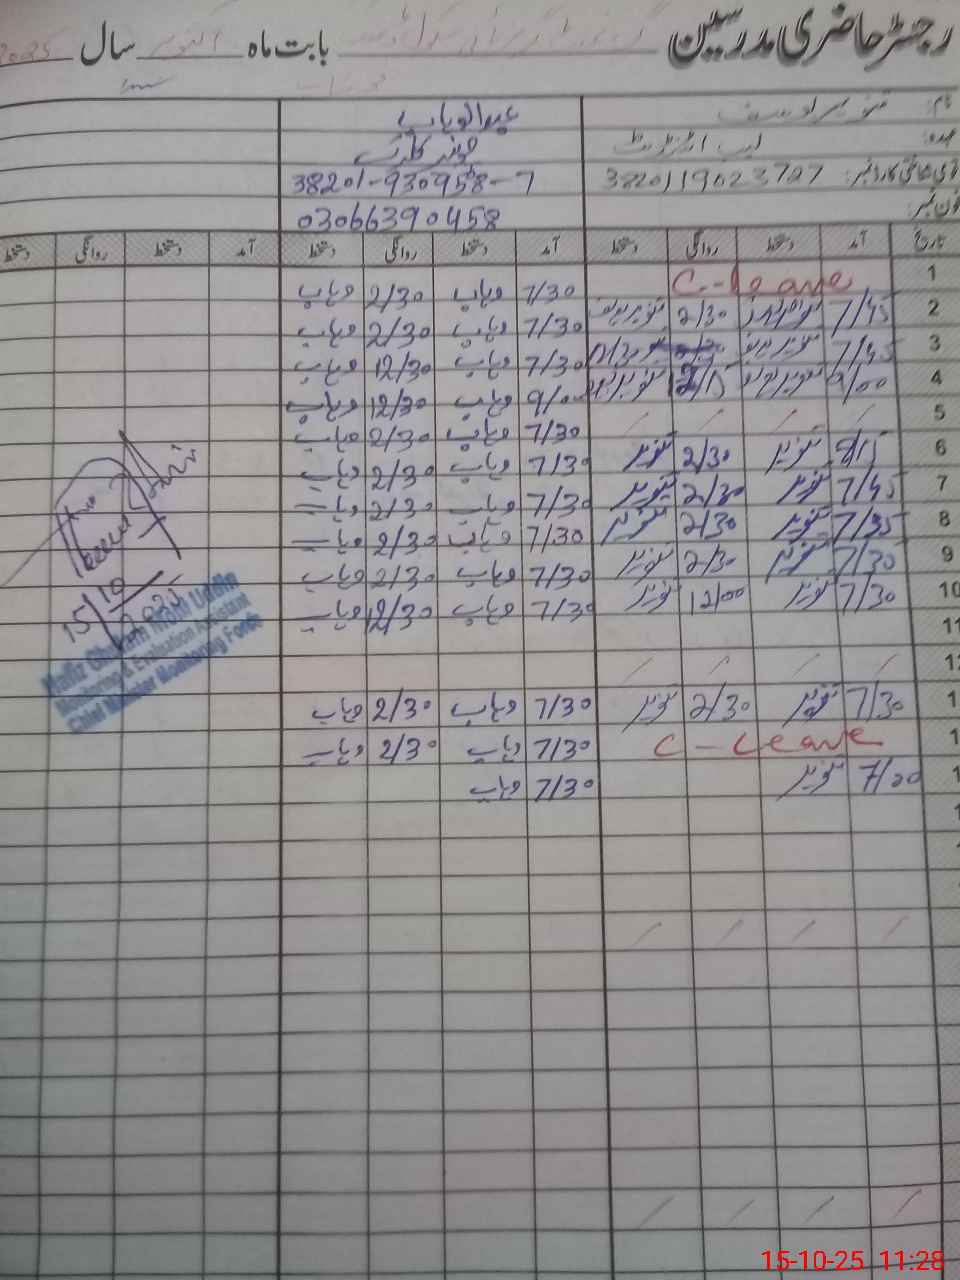 رجسٹر حاضری مدرسین بابت ماہ اکتوبر سال 2025
نام: تنویر یوسف عبدالوہاب
عہدہ: لیب اٹنڈنٹ جونیئر کلرک
قومی شناختی کارڈ نمبر: 38201-930958-7
فون نمبر: 03066390458
تاریخ آمد دستخط روانگی دستخط آمد دستخط روانگی دستخط آمد دستخط روانگی دستخط
1 C-leave 7/30 وہاب 2/30 وہاب
2 7/45 2/30 7/30 وہاب 2/30 وہاب
3 7/45 7/30 وہاب 12/30 وہاب
4 9/00 9/00 وہاب 12/30 وہاب
5 / / / / 7/30 وہاب 2/30 وہاب
6 8/15 تنویر 2/30 تنویر 7/30 وہاب 2/30 وہاب
7 7/45 تنویر 2/30 تنویر 7/30 وہاب 2/30 وہاب
8 7/35 تنویر 2/30 تنویر 7/30 وہاب 2/30 وہاب
9 7/30 تنویر 2/30 تنویر 7/30 وہاب 2/30 وہاب
10 7/30 تنویر 12/00 تنویر 7/30 وہاب 12/30 وہاب
11
1 / / / /
1 7/30 تنویر 2/30 تنویر 7/30 وہاب 2/30 وہاب
1 C-Leave 7/30 وہاب 2/30 وہاب
1 7/20 تنویر 7/30 وہاب
/ / / /
/ / / /
15/10/2025
Hafiz Ghulam Mohi Uddin
Monitoring & Evaluation Assistant
Chief Minister Monitoring Force
15-10-25 11:28